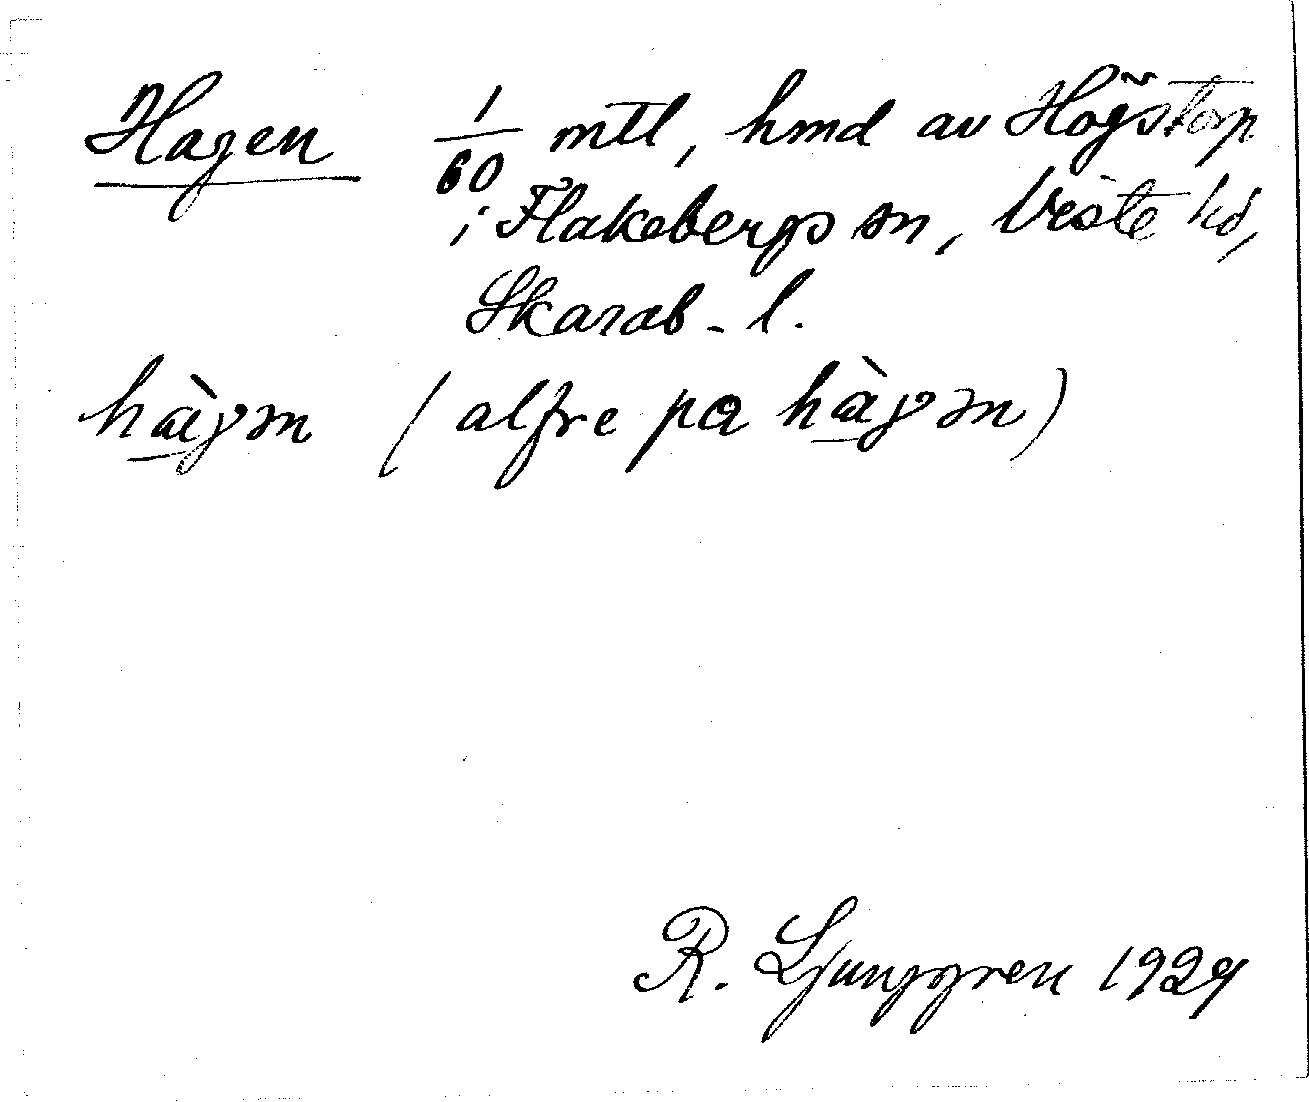 Hagen 1/60 mtl, hmd av Högstorp
i Flakebergs sn, Viste hd,
Skarab-l.
hàgm (alfre pa hàgm)
R. Ljunggren 1929